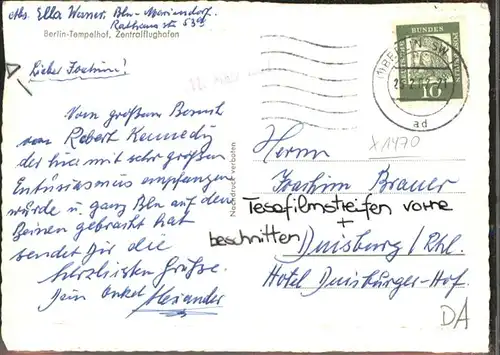 Abs. Ella Wasner, Bln-Mariendorf
Rathaus str 53
Berlin-Tempelhof, Zentralflughafen
Lieber Joachim!
Vom großen Besuch
von Robert Kennedy
der hier mit sehr großen
Entusiasmus empfangen
wurde u. ganz Bln auf den
Beinen gebracht hat
sendet Dir die
herzlichsten Grüsse.
Dein Onkel Alexander
Nachdruck verboten
DEUTSCHE BUNDESPOST
10
BERLIN SW
ad
X1470
Herrn
Joachim Brauer
Tesafilmstreifen vorne
+
beschnitten
Duisburg/Rhl.
Hotel Duisburger-Hof.
DA